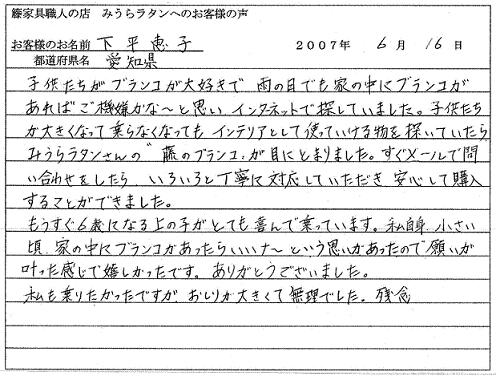 籐家具職人の店　みうらラタンへのお客様の声
お客様のお名前　下平恵子　２００７年　６月　１６日
都道府県名　愛知県
子供たちがブランコが大好きで　雨の日でも家の中にブランコが
あればご機嫌かな〜と思い　インターネットで探していました。子供たち
が大きくなって乗らなくなっても　インテリアとして使っていける物を探いていたら
みうらラタンさんの"藤のブランコ"が目にとまりました。すぐメールで問
い合わせをしたら　いろいろと丁寧に対応していただき　安心して購入
することができました。
もうすぐ6歳になる上の子がとても喜んで乗っています。私自身　小さい
頃　家の中にブランコがあったらいいな〜という思いがあったので願いが
叶った感じで嬉しかったです。ありがとうございました。
私も乗りたかったですが　おしりが大きくて無理でした。残念